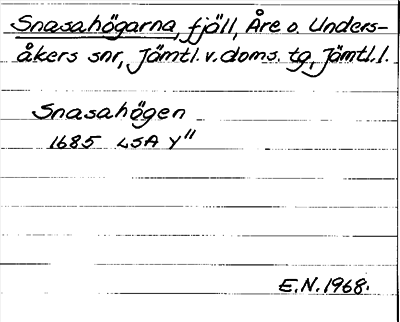 Snasahögarna, fjäll, Åre o. Unders-
åkers snr, Jämtl. v. doms. tg, Jämtl. l.
Snasahögen
1685 LSA Y"
E.N. 1968.